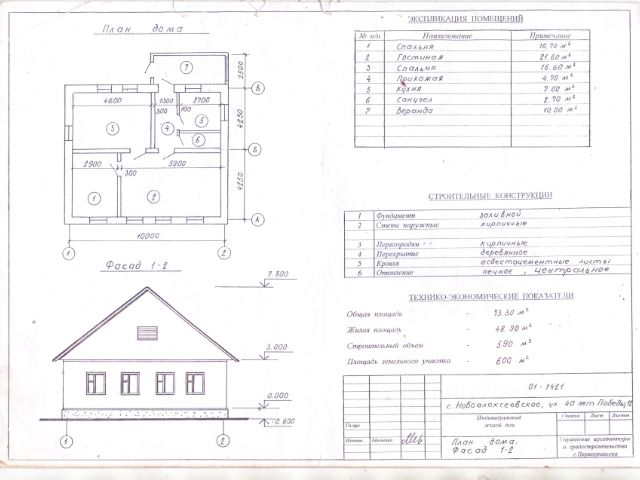 План дома
7
2500
В
4600
1300
2700
300
100
3
4
5
6
4250
Б
2900
5900
300
1
2
4250
А
10000
1
2
Фасад 1-2
3.000
0.000
-0.600
1
2
ЭКСПЛИКАЦИЯ ПОМЕЩЕНИЙ
№ п/п Наименование Примечание
1 Спальня 10.70 м²
2 Гостиная 21.60 м²
3 Спальня 16.60 м²
4 Прихожая 4.70 м²
5 Кухня 7.00 м²
6 Санузел 2.70 м²
7 Веранда 10.00 м²
СТРОИТЕЛЬНЫЕ КОНСТРУКЦИИ
1 Фундамент заливной
2 Стены наружные кирпичные
3 Перегородки кирпичные
4 Перекрытие деревянное
5 Кровля асбестоцементные листы
6 Отопление печное, центральное
ТЕХНИКО-ЭКОНОМИЧЕСКИЕ ПОКАЗАТЕЛИ
Общая площадь - 73.30 м²
Жилая площадь - 48.90 м²
Строительный объем - 590 м³
Площадь земельного участка - 600 м²
01-1421
с. Новоалексеевское, ул. 40 лет Победы, 12
Индивидуальный
жилой дом
Стадия Лист Листов
План дома.
Фасад 1-2
Управление архитектуры
и градостроительства
г. Первоуральска